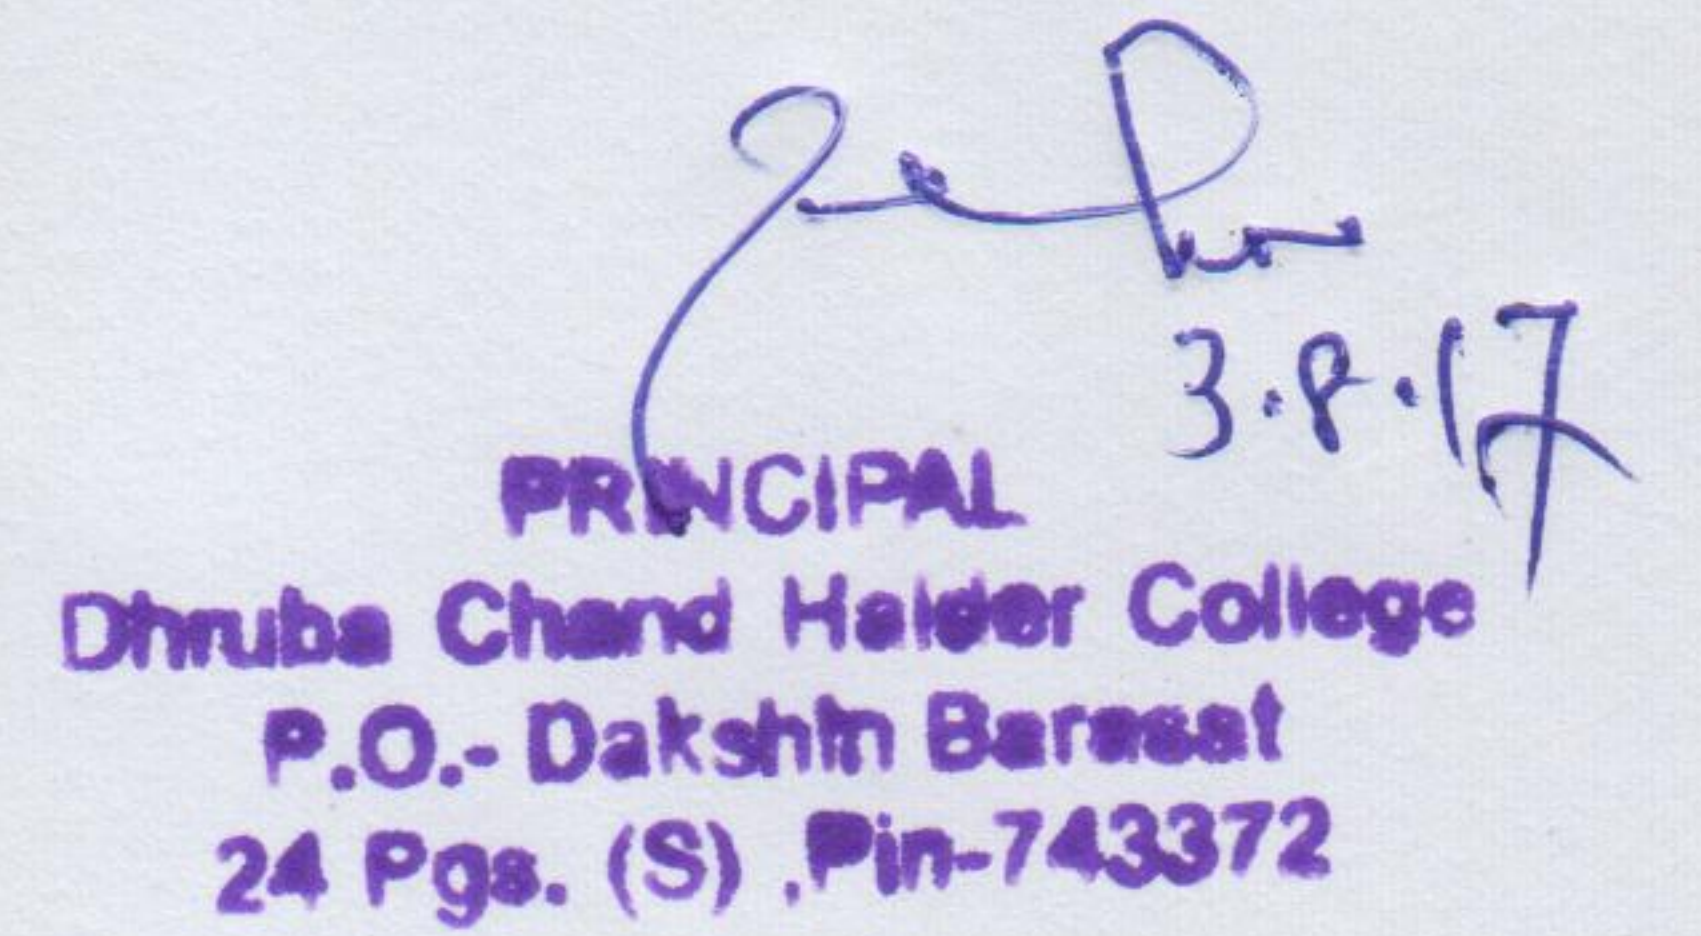 3.8.17
PRINCIPAL
Dhruba Chand Halder College
P.O.- Dakshin Barasat
24 Pgs. (S) ,Pin-743372